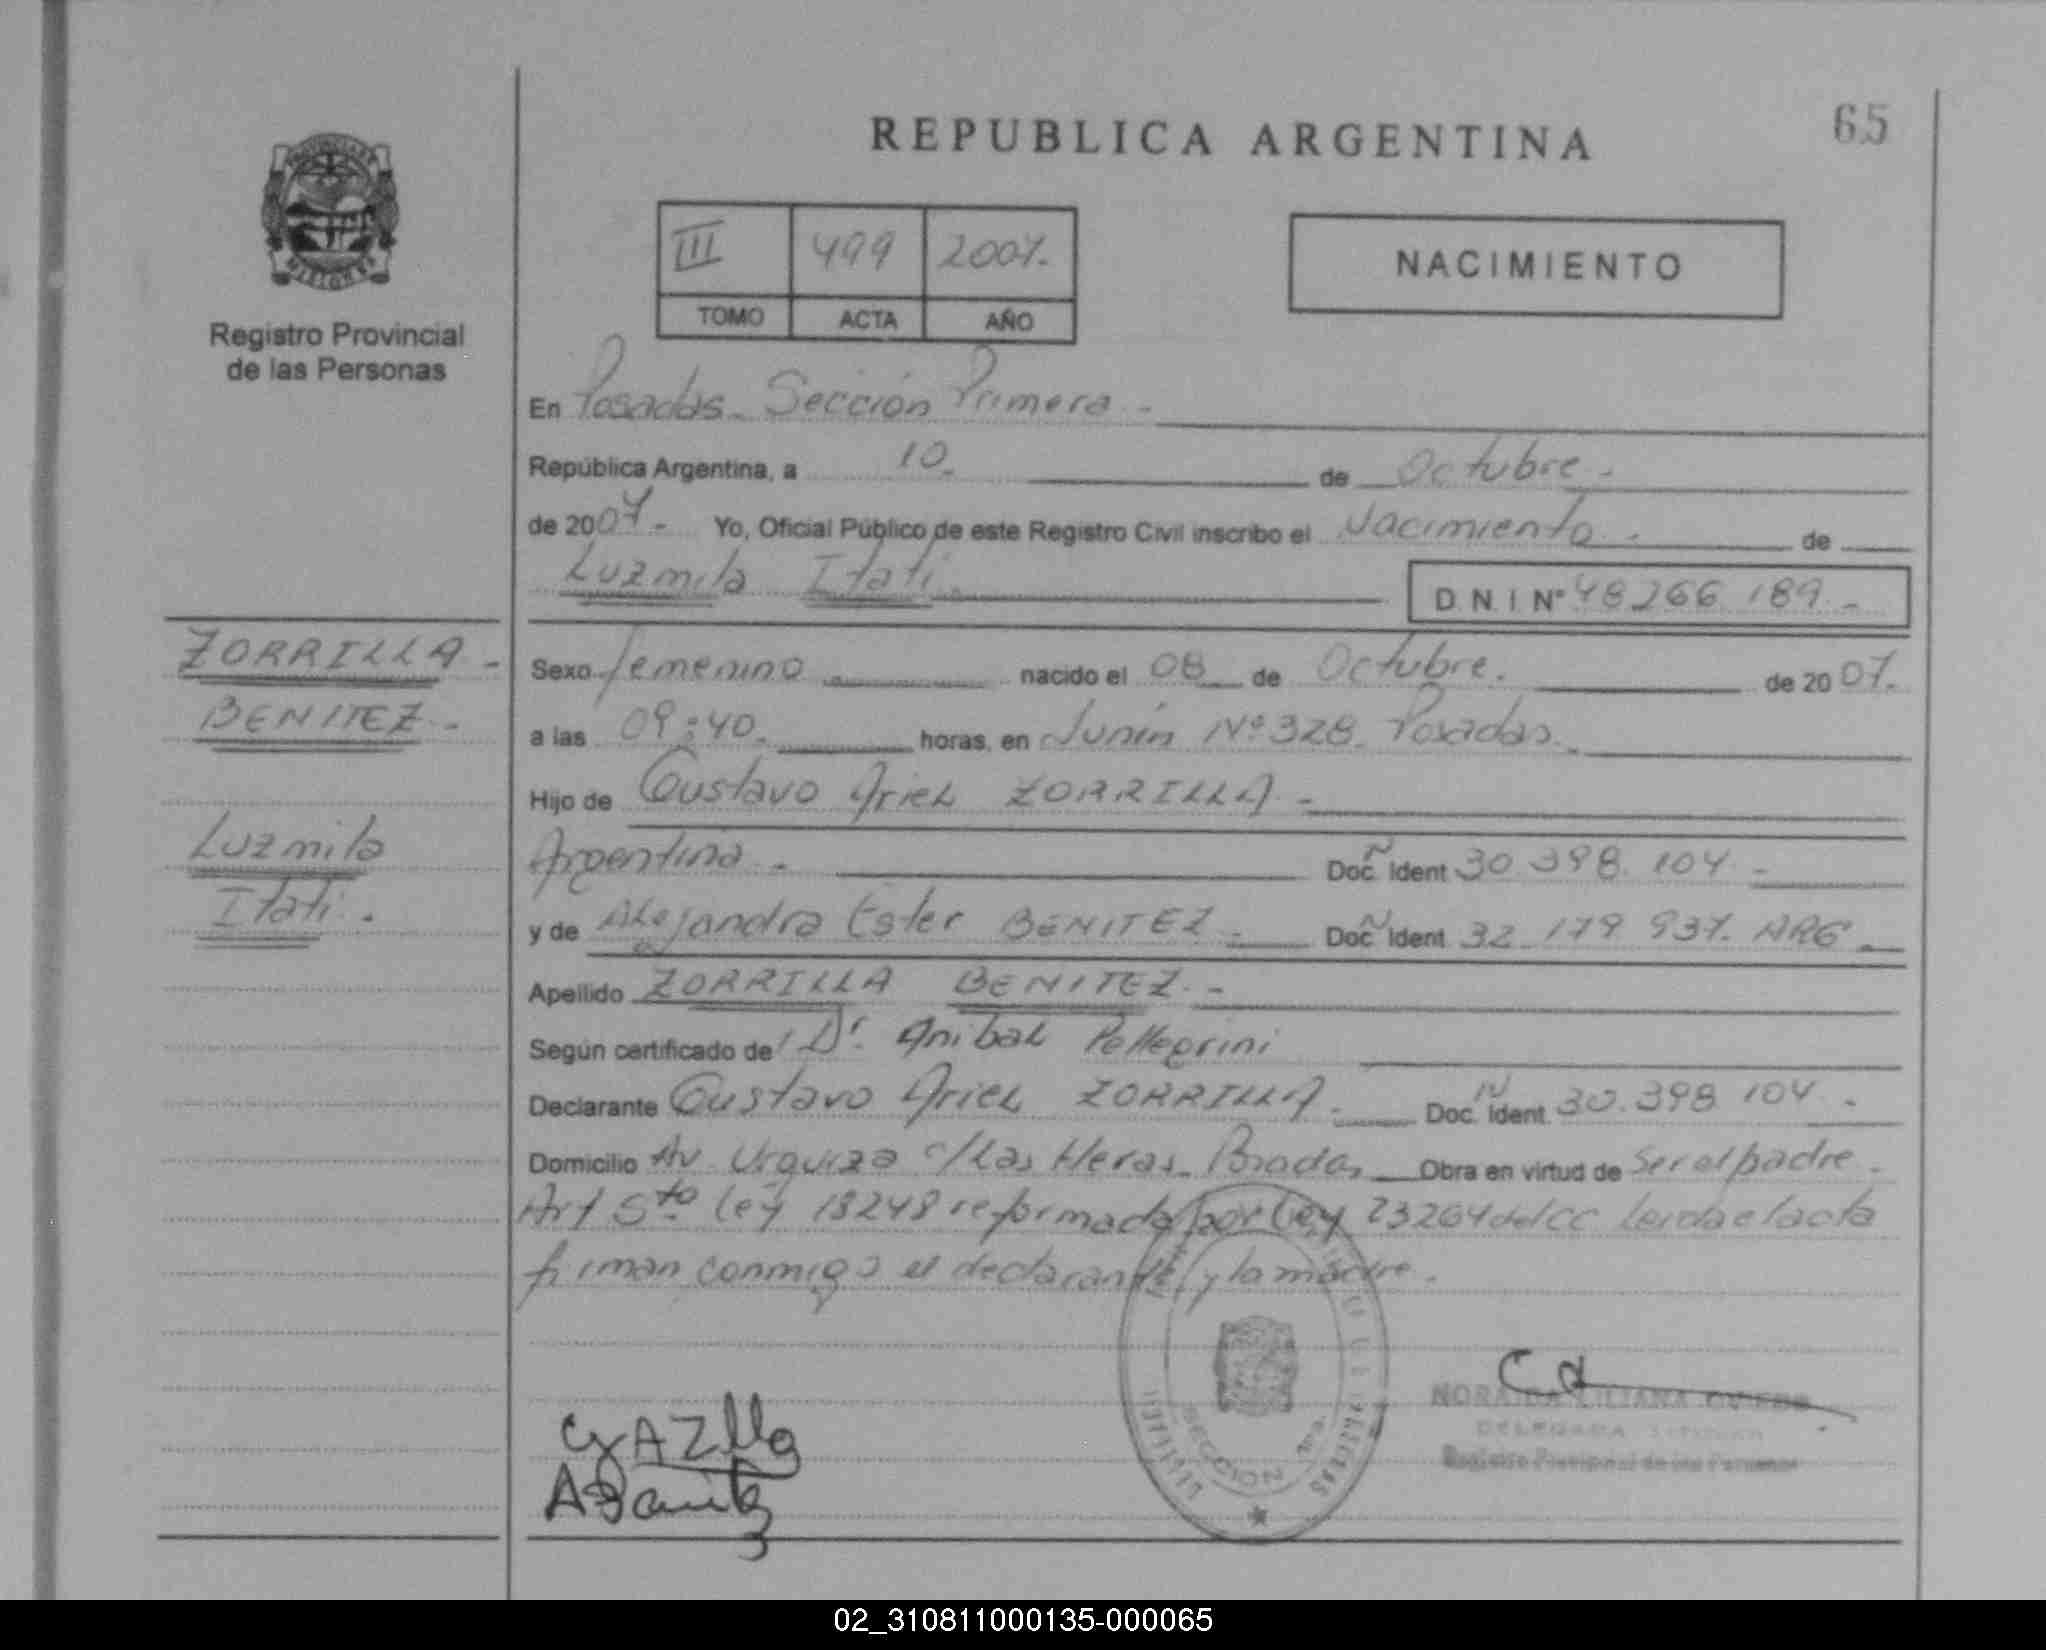 REPUBLICA ARGENTINA
65
PROVINCIA DE MISIONES
Registro Provincial
de las Personas
III 499 2007.-
TOMO ACTA AÑO
NACIMIENTO
En Posadas - Sección Primera -
República Argentina, a 10 - de Octubre -
de 2007 - Yo, Oficial Público de este Registro Civil inscribo el Nacimiento - de
Luzmila Itatí - D.N.I Nº 48266 189 -
ZORRILLA -
BENITEZ -
Luzmila
Itatí -
Sexo femenino nacido el 08 de Octubre. de 2007.
a las 09:40 - horas, en Junín Nº 328 - Posadas -
Hijo de Gustavo Ariel ZORRILLA -
Argentina - Doc. N Ident 30 398. 104 -
y de Alejandra Ester BENITEZ - Doc N Ident 32 179 937. ARG -
Apellido ZORRILLA BENITEZ -
Según certificado de Dr. Anibal Pellegrini
Declarante Gustavo Ariel ZORRILLA - Doc. N Ident. 30.398 104 -
Domicilio Av. Urquiza c/Las Heras - Posadas Obra en virtud de Ser el padre -
Art 5to ley 18248 reformada por Ley 23264 del CC Leida el acta
firman conmigo el declarante y la madre -
GAZlla
ABenitez
SECCION 1ra.
LILIANA
DELEGADA TITULAR
Registro Provincial de las Personas
02_310811000135-000065